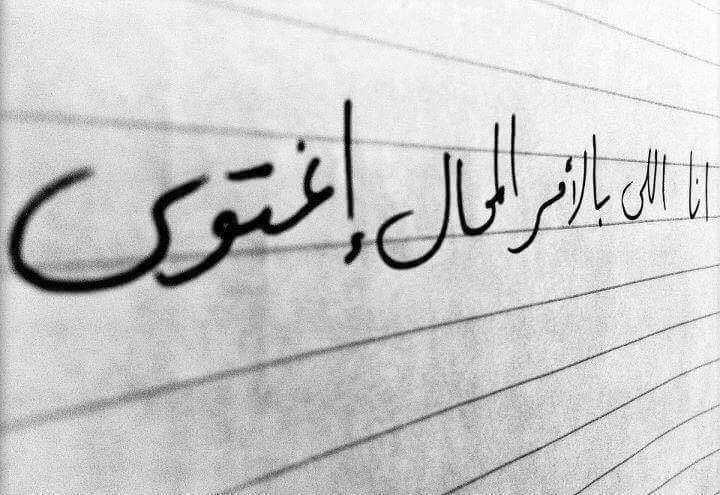 انا اللى بالأمر المحال إغتوى